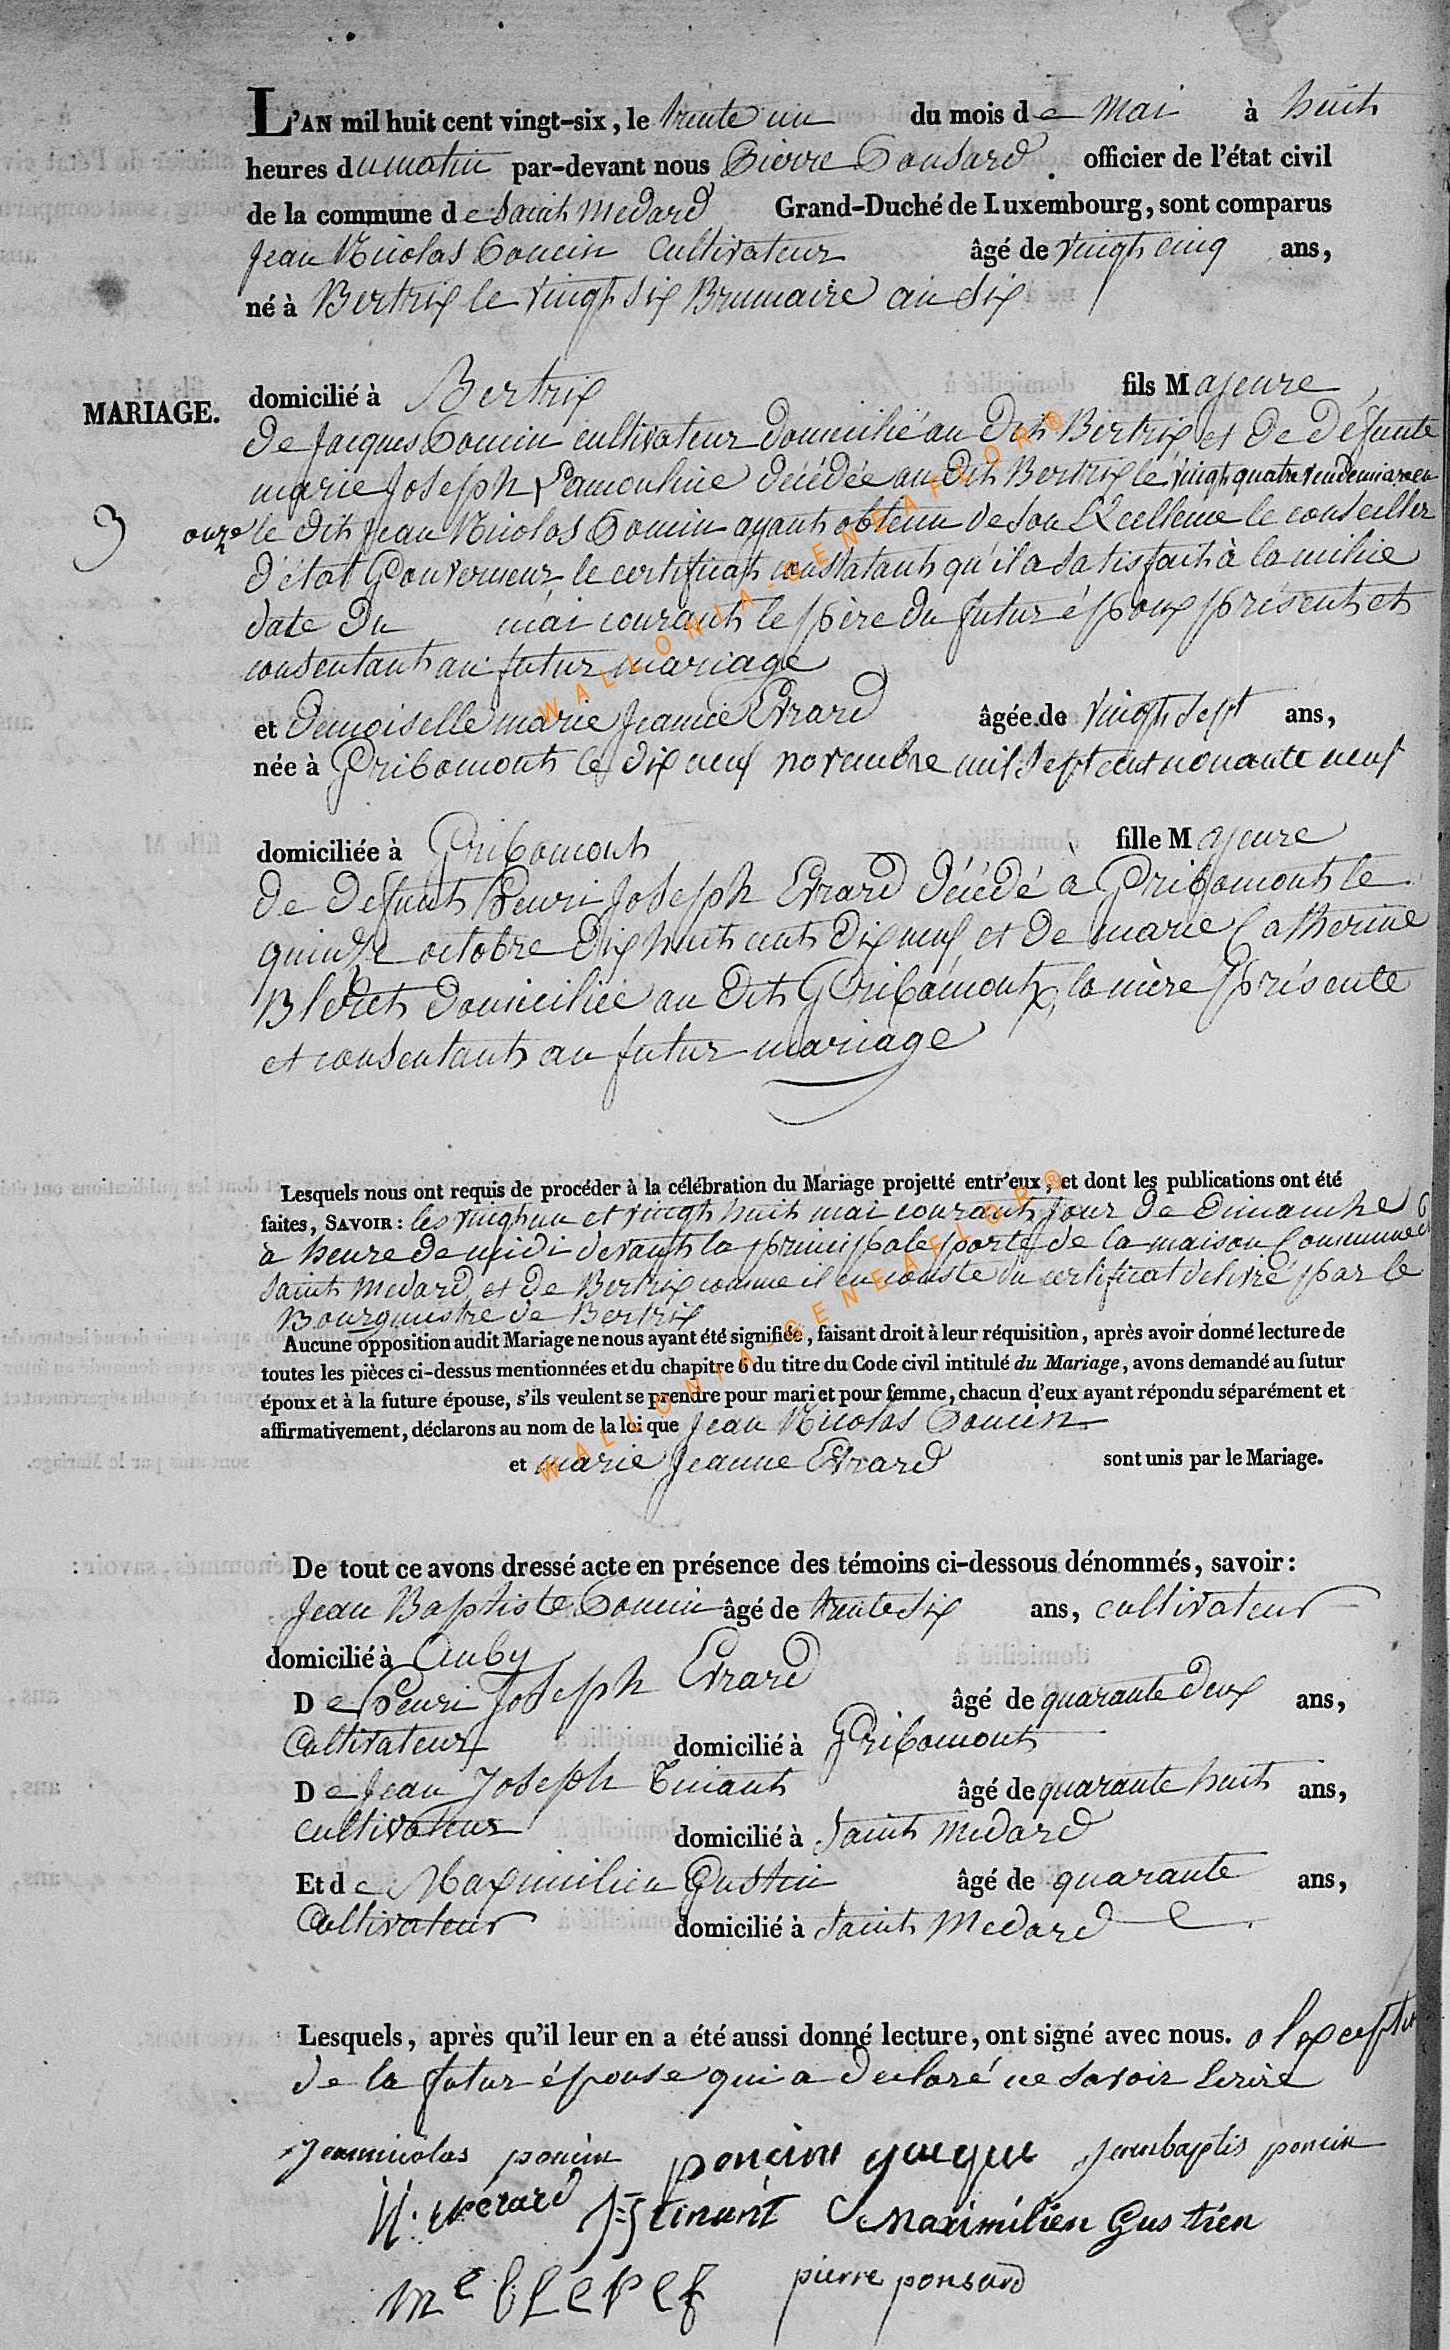 L'AN mil huit cent vingt-six, le trente un du mois de Mai à huit
heures du matin par-devant nous Pierre Ponsard officier de l'état civil
de la commune de Saint Medard Grand-Duché de Luxembourg, sont comparus
Jean Nicolas Poncin Cultivateur âgé de vingt cinq ans,
né à Bertrix le vingt six Brumaire an dix
MARIAGE.
domicilié à Bertrix fils Majeure
de Jacques Poncin cultivateur domicilié au dit Bertrix et de défunte
marie Joseph Lamouline décédée au dit Bertrix le vingt quatre vendemiare an
3
onze le dit Jean Nicolas Poncin ayant obtenu de son Excellence le conseiller
d'état Gouverneur le certificat constatant qu'il a satisfait à la milice
date du mai courant le père du futur époux présent et
consentant au futur mariage
et Demoiselle marie Jeanne Evrard âgée de vingt sept ans,
née à Gribomont le dix neuf novembre mil sept cent nonante neuf
domiciliée à Gribomont fille Majeure
de defunt Henri Joseph Evrard décédé à Gribomont le
quinze octobre dix huit cent dix neuf et de marie Catherine
Bleret domiciliée au dit Gribomont, la mère présente
et consentant au futur mariage
Lesquels nous ont requis de procéder à la célébration du Mariage projetté entr'eux, et dont les publications ont été
faites, SAVOIR : les vingt un et vingt huit mai courant jour de Dimanche
a heure de midi devant la principale porte de la maison Commune de
Saint Medard et de Bertrix comme il en conste du certificat delivré par le
Bourgmestre de Bertrix
Aucune opposition audit Mariage ne nous ayant été signifiée, faisant droit à leur réquisition, après avoir donné lecture de
toutes les pièces ci-dessus mentionnées et du chapitre 6 du titre du Code civil intitulé du Mariage, avons demandé au futur
époux et à la future épouse, s'ils veulent se prendre pour mari et pour femme, chacun d'eux ayant répondu séparément et
affirmativement, déclarons au nom de la loi que Jean Nicolas Poncin
et marie Jeanne Evrard sont unis par le Mariage.
De tout ce avons dressé acte en présence des témoins ci-dessous dénommés, savoir :
Jean Baptiste Poncin âgé de trente six ans, cultivateur
domicilié à Auby
De Henri Joseph Evrard âgé de quarante deux ans,
Cultivateur domicilié à Gribomont
De Jean Joseph Tinant âgé de quarante huit ans,
cultivateur domicilié à Saint Medard
Et de Maximilien Gustin âgé de quarante ans,
Cultivateur domicilié à Saint Medard
Lesquels, après qu'il leur en a été aussi donné lecture, ont signé avec nous. a l'exception
de la futur épouse qui a declaré ne savoir Ecrire
Jeannicolas poncin poncin jacque Jeanbaptis poncin
H. everard JJ tinant Maximilien Gustien
mc bleret pierre ponsard
WALLONIA-GENEAFLOR®
WALLONIA-GENEAFLOR®